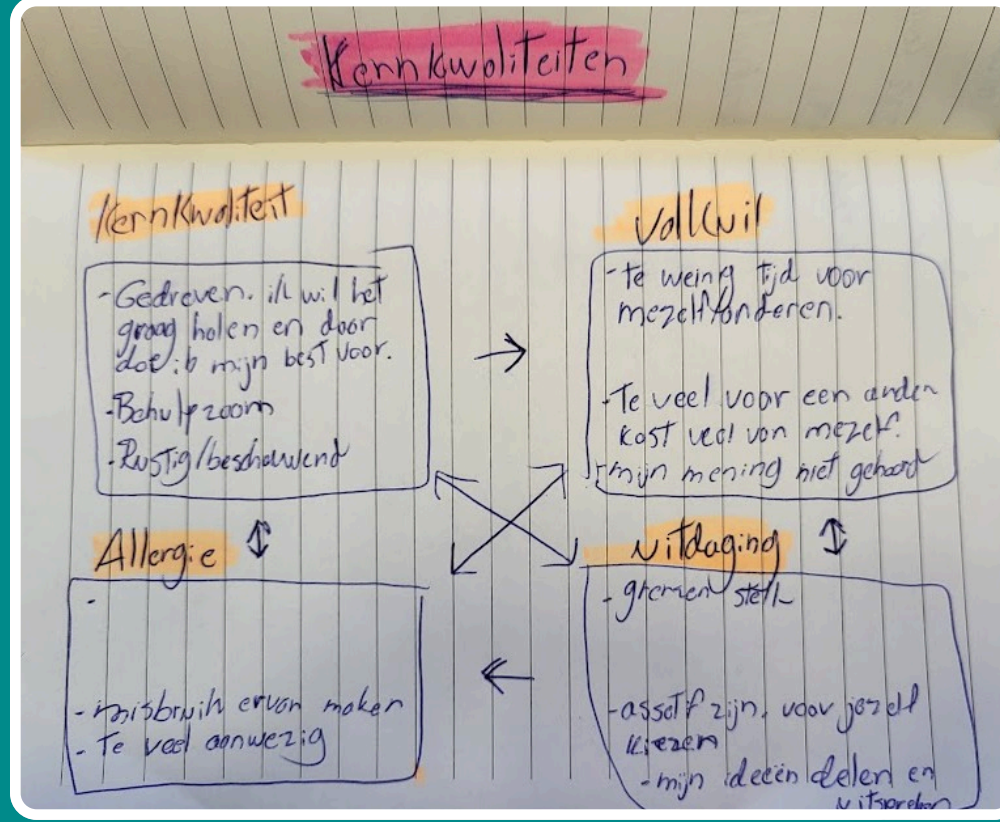 Kernkwaliteiten
Kernkwaliteit
-Gedreven. ik wil het
graag halen en daar
doe ik mijn best voor.
-Behulpzaam
-Rustig/beschouwend
Valkuil
-te weinig tijd voor
mezelf/anderen.
-Te veel voor een ander
kost veel van mezelf.
-mijn mening niet gehoord
Allergie
-
-misbruik ervan maken
-Te veel aanwezig
uitdaging
-grenzen
-zijn, voor jezelf
kiezen
-mijn ideeën delen en
uitspreken